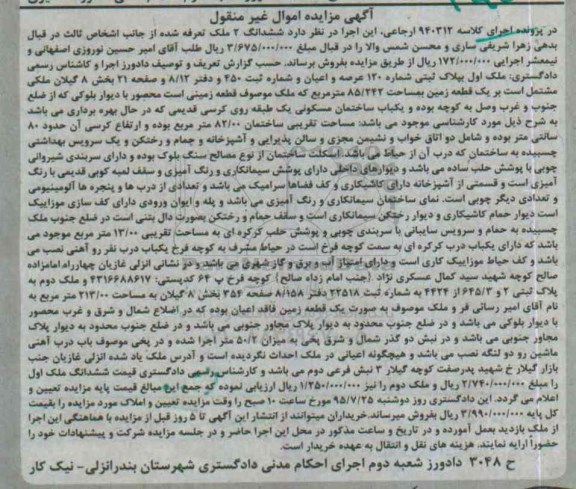 آگهی مزایده اموال غیر منقول
در پرونده اجرای کلاسه ۹۴۰۳۱۲ ارجاعی، این اجرا در نظر دارد ششدانگ ۲ ملک تعرفه شده از جانب اشخاص ثالث در قبال
بدهی زهرا شریفی ساری و محسن شمس والا را در قبال مبلغ ۳/۶۷۵/۰۰۰/۰۰۰ ریال طلب آقای امیر حسین نوروزی اصفهانی و
نیمعشر اجرایی ۱۷۲/۰۰۰/۰۰۰ ریال از طریق مزایده بفروش برساند. حسب گزارش تعریف و توصیف دادورز اجرا و کارشناس رسمی
دادگستری: ملک اول پلاک ثبتی شماره ۱۲۰ عرصه و اعیان و شماره ثبت ۴۵۰ و دفتر ۸/۱۲ و صفحه ۲۱ بخش ۸ گیلان ملکی
مشتمل است بر یک قطعه زمین بمساحت ۸۵/۲۴۲ مترمربع که ملک موصوف قطعه زمینی است محصور با دیوار بلوکی که از ضلع
جنوب و غرب وصل به کوچه بوده و یکباب ساختمان مسکونی یک طبقه روی کرسی قدیمی که در حال بهره برداری می باشد
به شرح ذیل مورد کارشناسی موجود می باشد: مساحت تقریبی ساختمان ۸۲/۰۰ متر مربع بوده و ارتفاع کرسی آن حدود ۸۰
سانتی متر بوده و شامل دو اتاق خواب و نشیمن مجزی و سالن پذیرایی و آشپزخانه و حمام و رختکن و یک سرویس بهداشتی
چسبیده به ساختمان که درب آن از حیاط می باشد اسکلت ساختمان از نوع مصالح سنگ بلوک بوده و دارای سربندی شیروانی
چوبی با پوشش حلب ساده می باشد و دیوارهای داخلی دارای پوشش سیمانکاری و رنگ آمیزی و سقف لمبه کوبی قدیمی با رنگ
آمیزی است و قسمتی از آشپزخانه دارای کاشیکاری و کف فضاها سرامیک می باشد و تعدادی از درب ها و پنجره ها آلومینیومی
و تعدادی دیگر چوبی است. نمای ساختمان سیمانکاری و رنگ آمیزی می باشد و پله و ایوان ورودی دارای کف سازی موزاییک
است دیوار حمام کاشیکاری و دیوار رختکن سیمانکاری است و سقف حمام و رختکن بصورت دال بتنی است در ضلع جنوب ملک
چسبیده به حمام و سرویس سایبانی با سربندی چوبی و پوشش حلب کرکره ای به مساحت تقریبی ۱۳/۰۰ متر مربع موجود می
باشد که دارای یکباب درب کرکره ای به سمت کوچه فرخ است در حیاط مشرف به کوچه فرخ یکباب درب نفر رو آهنی نصب می
باشد و کف حیاط موزاییک کاری است و دارای امتیاز آب و برق و گاز شهری می باشد و در نشانی انزلی غازیان چهارراه امامزاده
صالح کوچه شهید سید کمال عسکری نژاد (جنب امام زداه صالح) کوچه فرخ پ ۶۴ کدپستی: ۴۳۱۶۶۸۸۶۱۷ و ملک دوم به
پلاک ثبتی ۲ و ۶۴۵/۳ از ۴۴۲۴ به شماره ثبت ۲۲۵۱۸ دفتر ۸/۱۵۸ صفحه ۳۵۴ بخش ۸ گیلان به مساحت ۲۱۳/۰۰ متر مربع به
نام آقای امیر رسائی فر و ملک موصوف به صورت یک قطعه زمین فاقد اعیان بوده که در اضلاع شمال و شرق و غرب محصور
با دیوار بلوکی می باشد و در ضلع جنوب محدود به دیوار پلاک مجاور جنوبی می باشد و در ضلع جنوب محدود به دیوار پلاک
مجاور جنوبی می باشد و در نبش دو گذر شمال و شرق پخی به میزان ۵۰/۲ متر اجرا شده و در پخی موصوف باب درب آهنی
ماشین رو دو لنگه نصب می باشد و هیچگونه اعیانی در ملک احداث نگردیده است و آدرس ملک یاد شده انزلی غازیان جنب
بازار گیلار خ شهید پدرصفت کوچه گیلار ۳ نبش فرعی دوم می باشد و کارشناس رسمی دادگستری قیمت ششدانگ ملک اول
را مبلغ ۲/۷۴۰/۰۰۰/۰۰۰ ریال و ملک دوم را نیز ۱/۲۵۰/۰۰۰/۰۰۰ ریال ارزیابی نموده که جمع این مبالغ قیمت پایه مزایده تعیین و
اعلام می گردد. این دادگستری روز دوشنبه ۹۵/۷/۲۵ مورخ ساعت ۱۰ صبح را وقت مزایده تعیین و املاک مورد مزایده را بقیمت
کل پایه ۳/۹۹۰/۰۰۰/۰۰۰ ریال بفروش میرساند.خریداران میتوانند از انتشار این آگهی تا ۵ روز قبل از مزایده با هماهنگی این اجرا
از ملک بازدید بعمل آمورده و در تاریخ و ساعت مذکور در محل این اجرا حاضر و در جلسه مزایده شرکت و پیشنهادات خود را
حضوراً ارایه نمایند. هزینه های نقل و انتقال به عهده خریدار است.
ح ۳۰۴۸ دادورز شعبه دوم اجرای احکام مدنی دادگستری شهرستان بندرانزلی- نیک کار